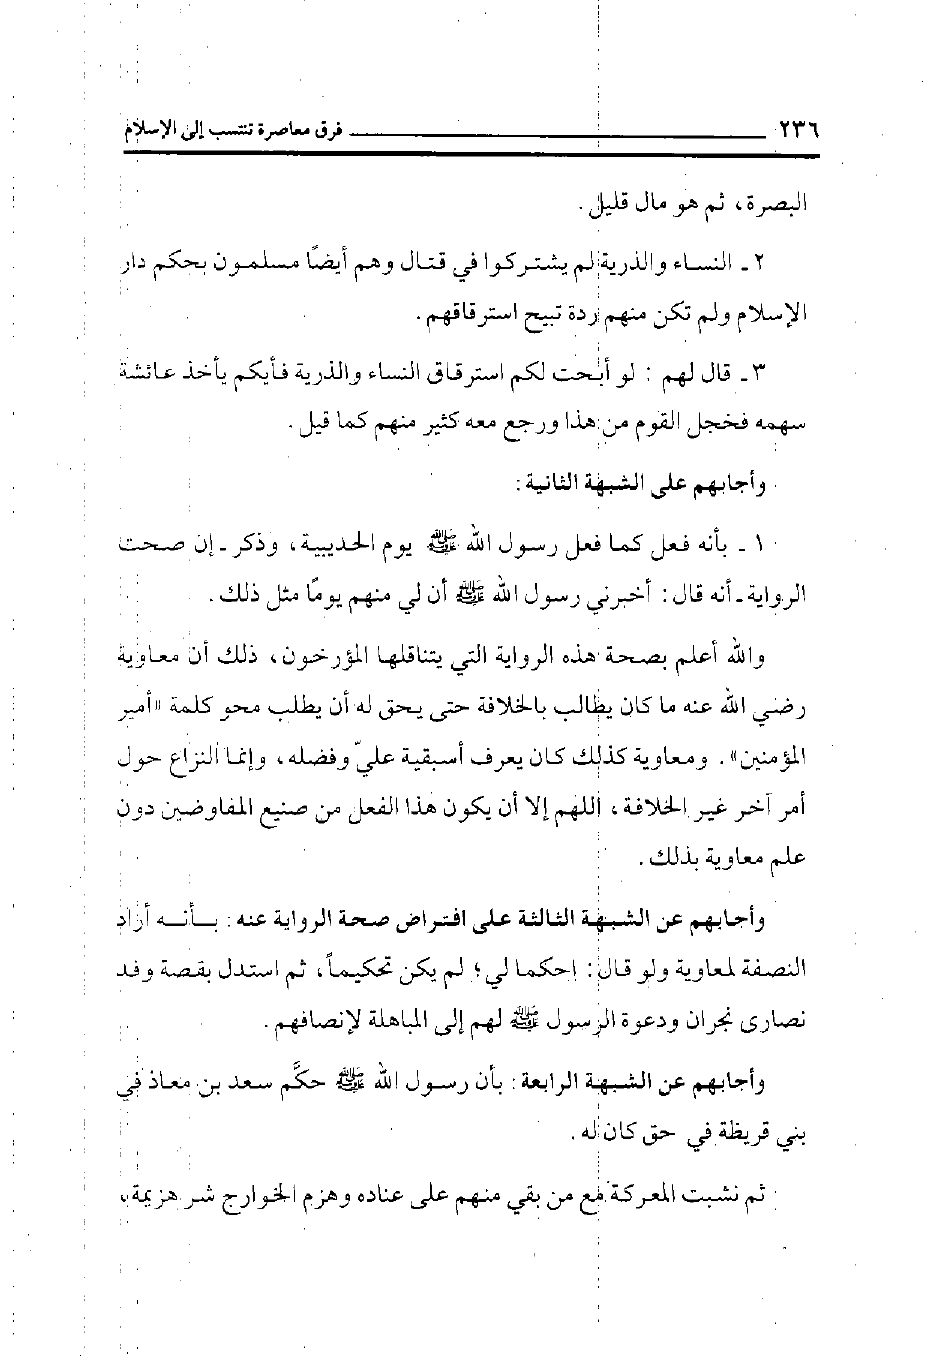 ٢٣٦ فرق معاصرة تنتسب إلى الإسلام
البصرة، ثم هو مال قليل.
٢ـ النساء والذرية لم يشتركوا في قتال وهم أيضًا مسلمون بحكم دار
الإسلام ولم تكن منهم ردة تبيح استرقاقهم.
٣ـ قال لهم : لو أبحت لكم استرقاق النساء والذرية فأيكم يأخذ عائشة
سهمه فخجل القوم من هذا ورجع معه كثير منهم كما قيل.
وأجابهم على الشبهة الثانية:
١ ـ بأنه فعل كما فعل رسول الله ﷺ يوم الحديبية، وذكر ـ إن صحت
الرواية ـ أنه قال: أخبرني رسول الله ﷺ أن لي منهم يومًا مثل ذلك.
والله أعلم بصحة هذه الرواية التي يتناقلها المؤرخون، ذلك أن معاوية
رضي الله عنه ما كان يطالب بالخلافة حتى يحق له أن يطلب محو كلمة «أمير
المؤمنين». ومعاوية كذلك كان يعرف أسبقية عليّ وفضله، وإنما النزاع حول
أمر آخر غير الخلافة، اللهم إلا أن يكون هذا الفعل من صنيع المفاوضين دون
علم معاوية بذلك.
وأجابهم عن الشبهة الثالثة على افتراض صحة الرواية عنه: بـأنـه أراد
النصفة لمعاوية ولو قال: احكما لي؛ لم يكن تحكيماً، ثم استدل بقصة وفد
نصارى نجران ودعوة الرسول ﷺ لهم إلى المباهلة لإنصافهم.
وأجابهم عن الشبهة الرابعة: بأن رسول الله ﷺ حكَّم سعد بن معاذ في
بني قريظة في حق كان له.
ثم نشبت المعركة مع من بقي منهم على عناده وهزم الخوارج شر هزيمة،